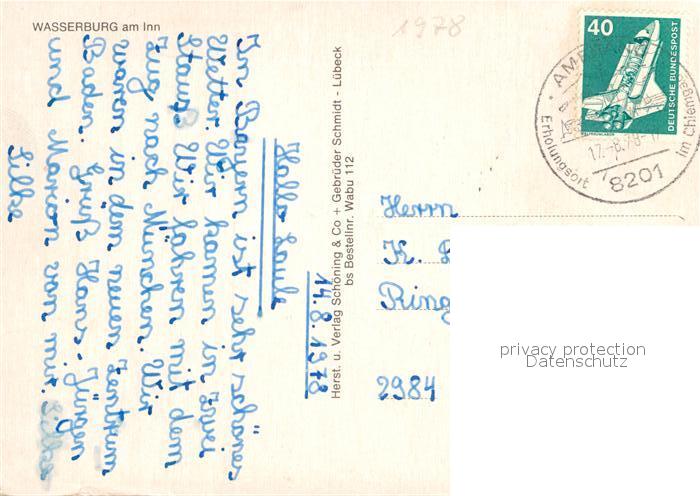 WASSERBURG am Inn
1978
14.8.1978
Hallo Leute
In Bayern ist sehr schönes
Wetter. Wir kamen in zwei
Staus. Wir fahren mit dem
Zug nach München. Wir
waren in dem neuen Zentrum
Baden. Gruß Hans-Jürgen
und Marion von mir. Silke
Silke
Herst. u. Verlag Schöning & Co + Gebrüder Schmidt - Lübeck
bs Bestellnr. Wabu 112
40
DEUTSCHE BUNDESPOST
Erholungsort
im Chiemgau
17.-8.78-17
8201
Herrn
K.
Ring
2984
privacy protection
Datenschutz